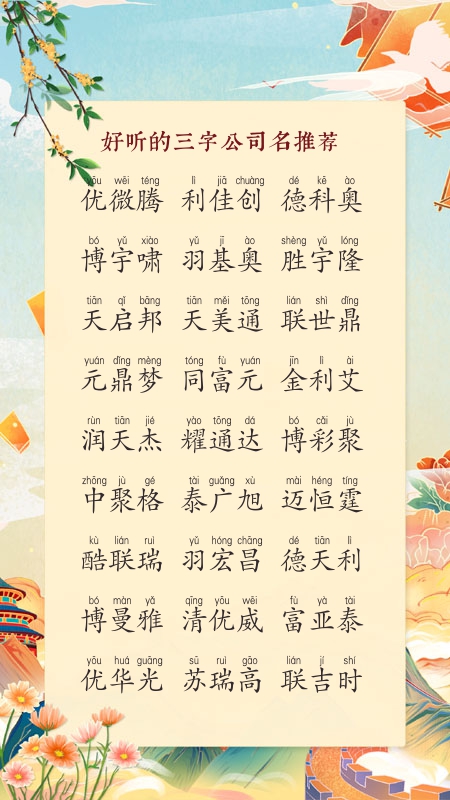 好听的三字公司名推荐
yōu wēi téng lì jiā chuàng dé kē ào
优微腾 利佳创 德科奥
bó yǔ xiào yǔ jī ào shèng yǔ lóng
博宇啸 羽基奥 胜宇隆
tiān qǐ bāng tiān měi tōng lián shì dǐng
天启邦 天美通 联世鼎
yuán dǐng mèng tóng fù yuán jīn lì ài
元鼎梦 同富元 金利艾
rùn tiān jié yào tōng dá bó cǎi jù
润天杰 耀通达 博彩聚
zhōng jù gé tài guǎng xù mài héng tíng
中聚格 泰广旭 迈恒霆
kù lián ruì yǔ hóng chāng dé tiān lì
酷联瑞 羽宏昌 德天利
bó màn yǎ qīng yōu wēi fù yà tài
博曼雅 清优威 富亚泰
yōu huá guāng sū ruì gāo lián jí shí
优华光 苏瑞高 联吉时